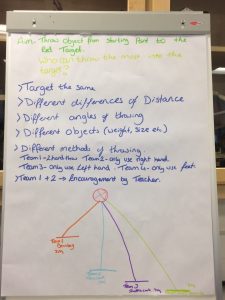 Aim - Throw Object from Starting Point to the
Red Target.
Who can throw the most into the
target?
> Target the same
> Different differences of Distance
> Different angles of throwing
> Different objects (weight, size etc.)
> Different methods of throwing.
Team 1 - 2 hand throw Team 2 - only use right hand.
Team 3 - only use left hand Team 4 - only use feet.
> Team 1 + 2 → Encouragement by Teacher.
Team 1
3m
Team 2
Team 3